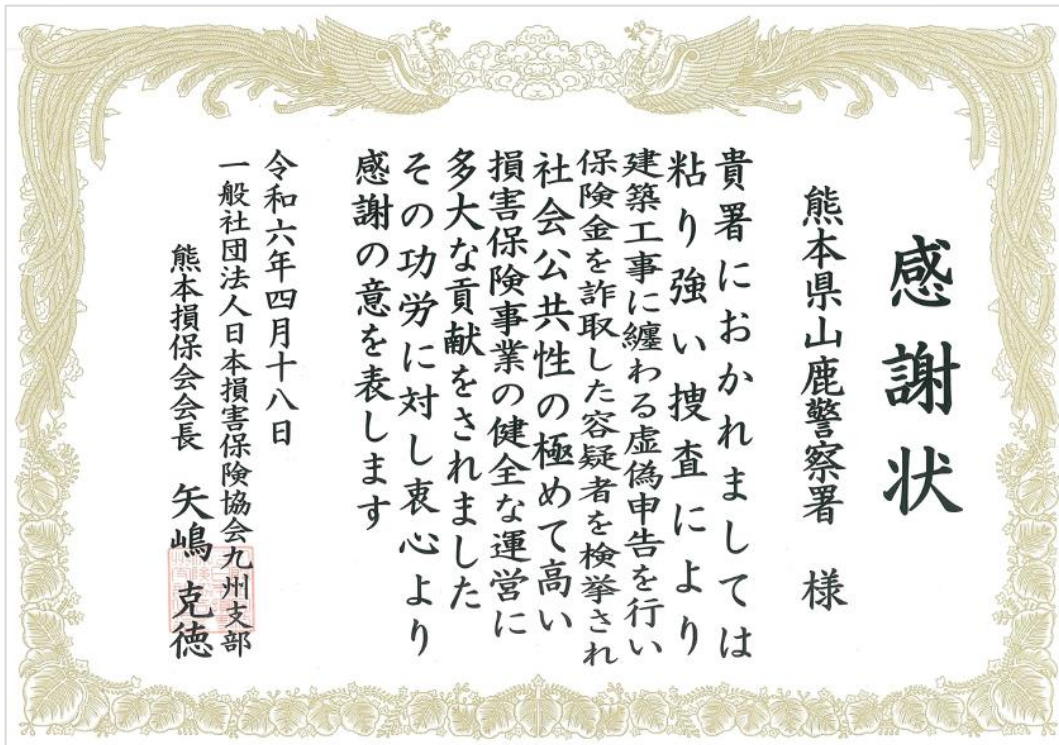 感謝状
熊本県山鹿警察署　様
貴署におかれましては
粘り強い捜査により
建築工事に纏わる虚偽申告を行い
保険金を詐取した容疑者を検挙され
社会公共性の極めて高い
損害保険事業の健全な運営に
多大な貢献をされました
その功労に対し衷心より
感謝の意を表します
令和六年四月十八日
一般社団法人日本損害保険協会九州支部
熊本損保会会長　矢嶋克徳